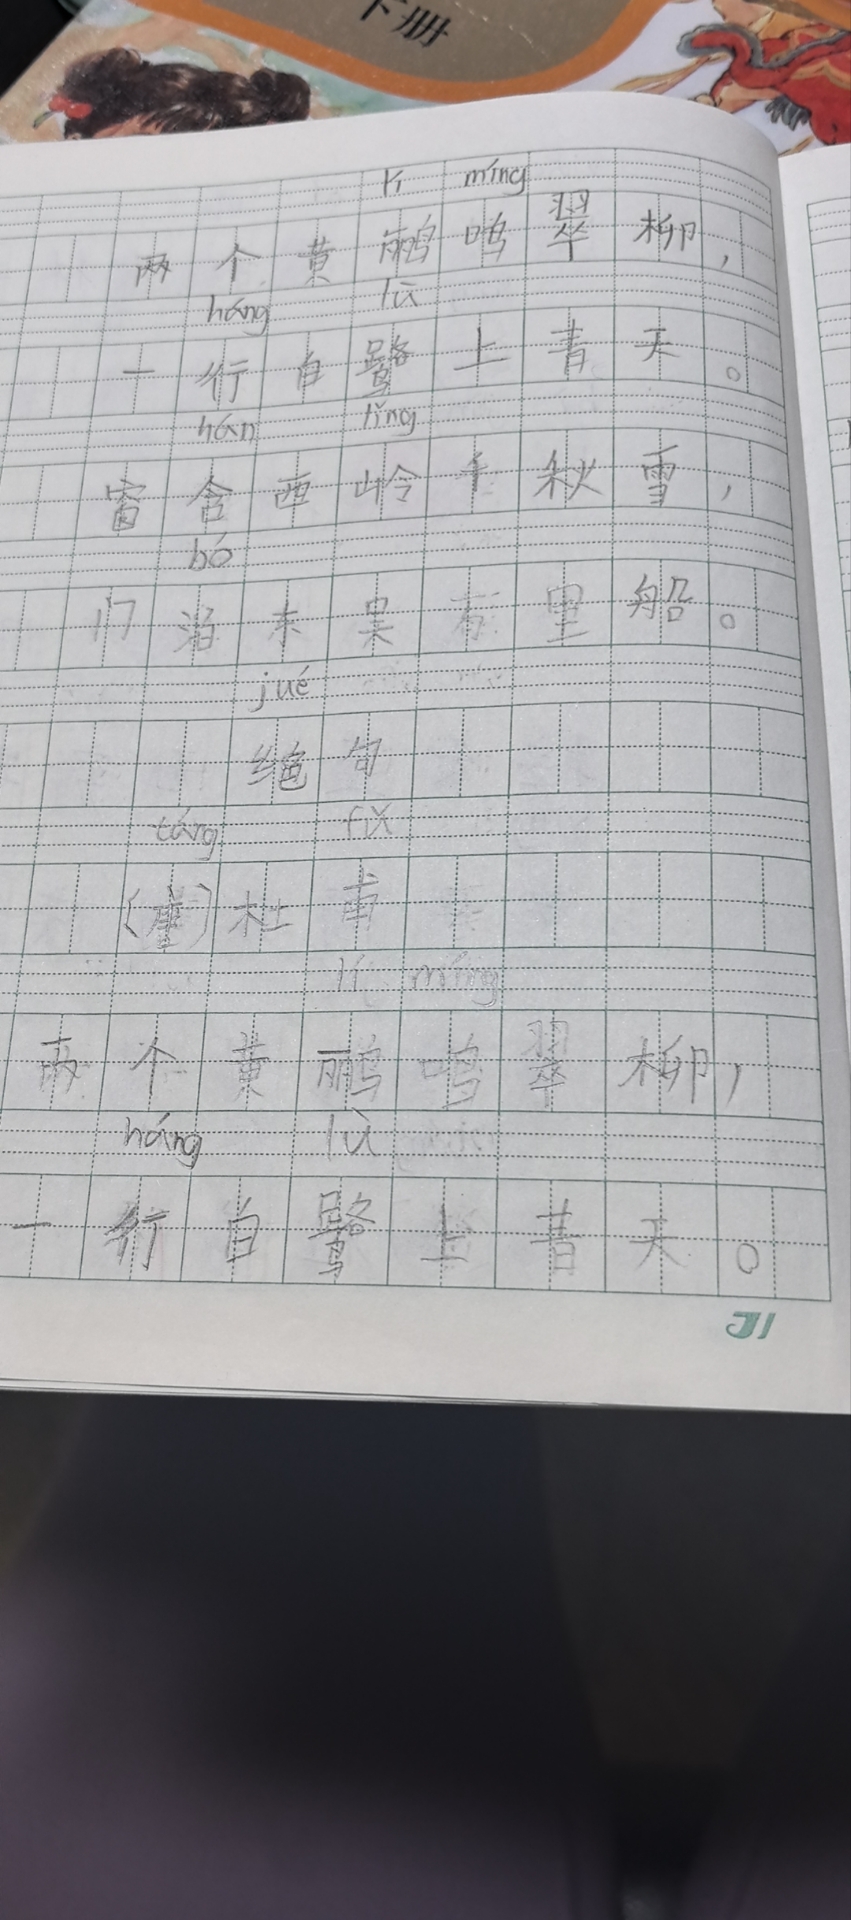 下册
lí míng
两个黄鹂鸣翠柳，
háng lù
一行白鹭上青天。
hán lǐng
窗含西岭千秋雪，
bó
门泊东吴万里船。
jué
绝句
táng fǔ
（唐）杜甫
lí míng
两个黄鹂鸣翠柳，
háng lù
一行白鹭上青天。